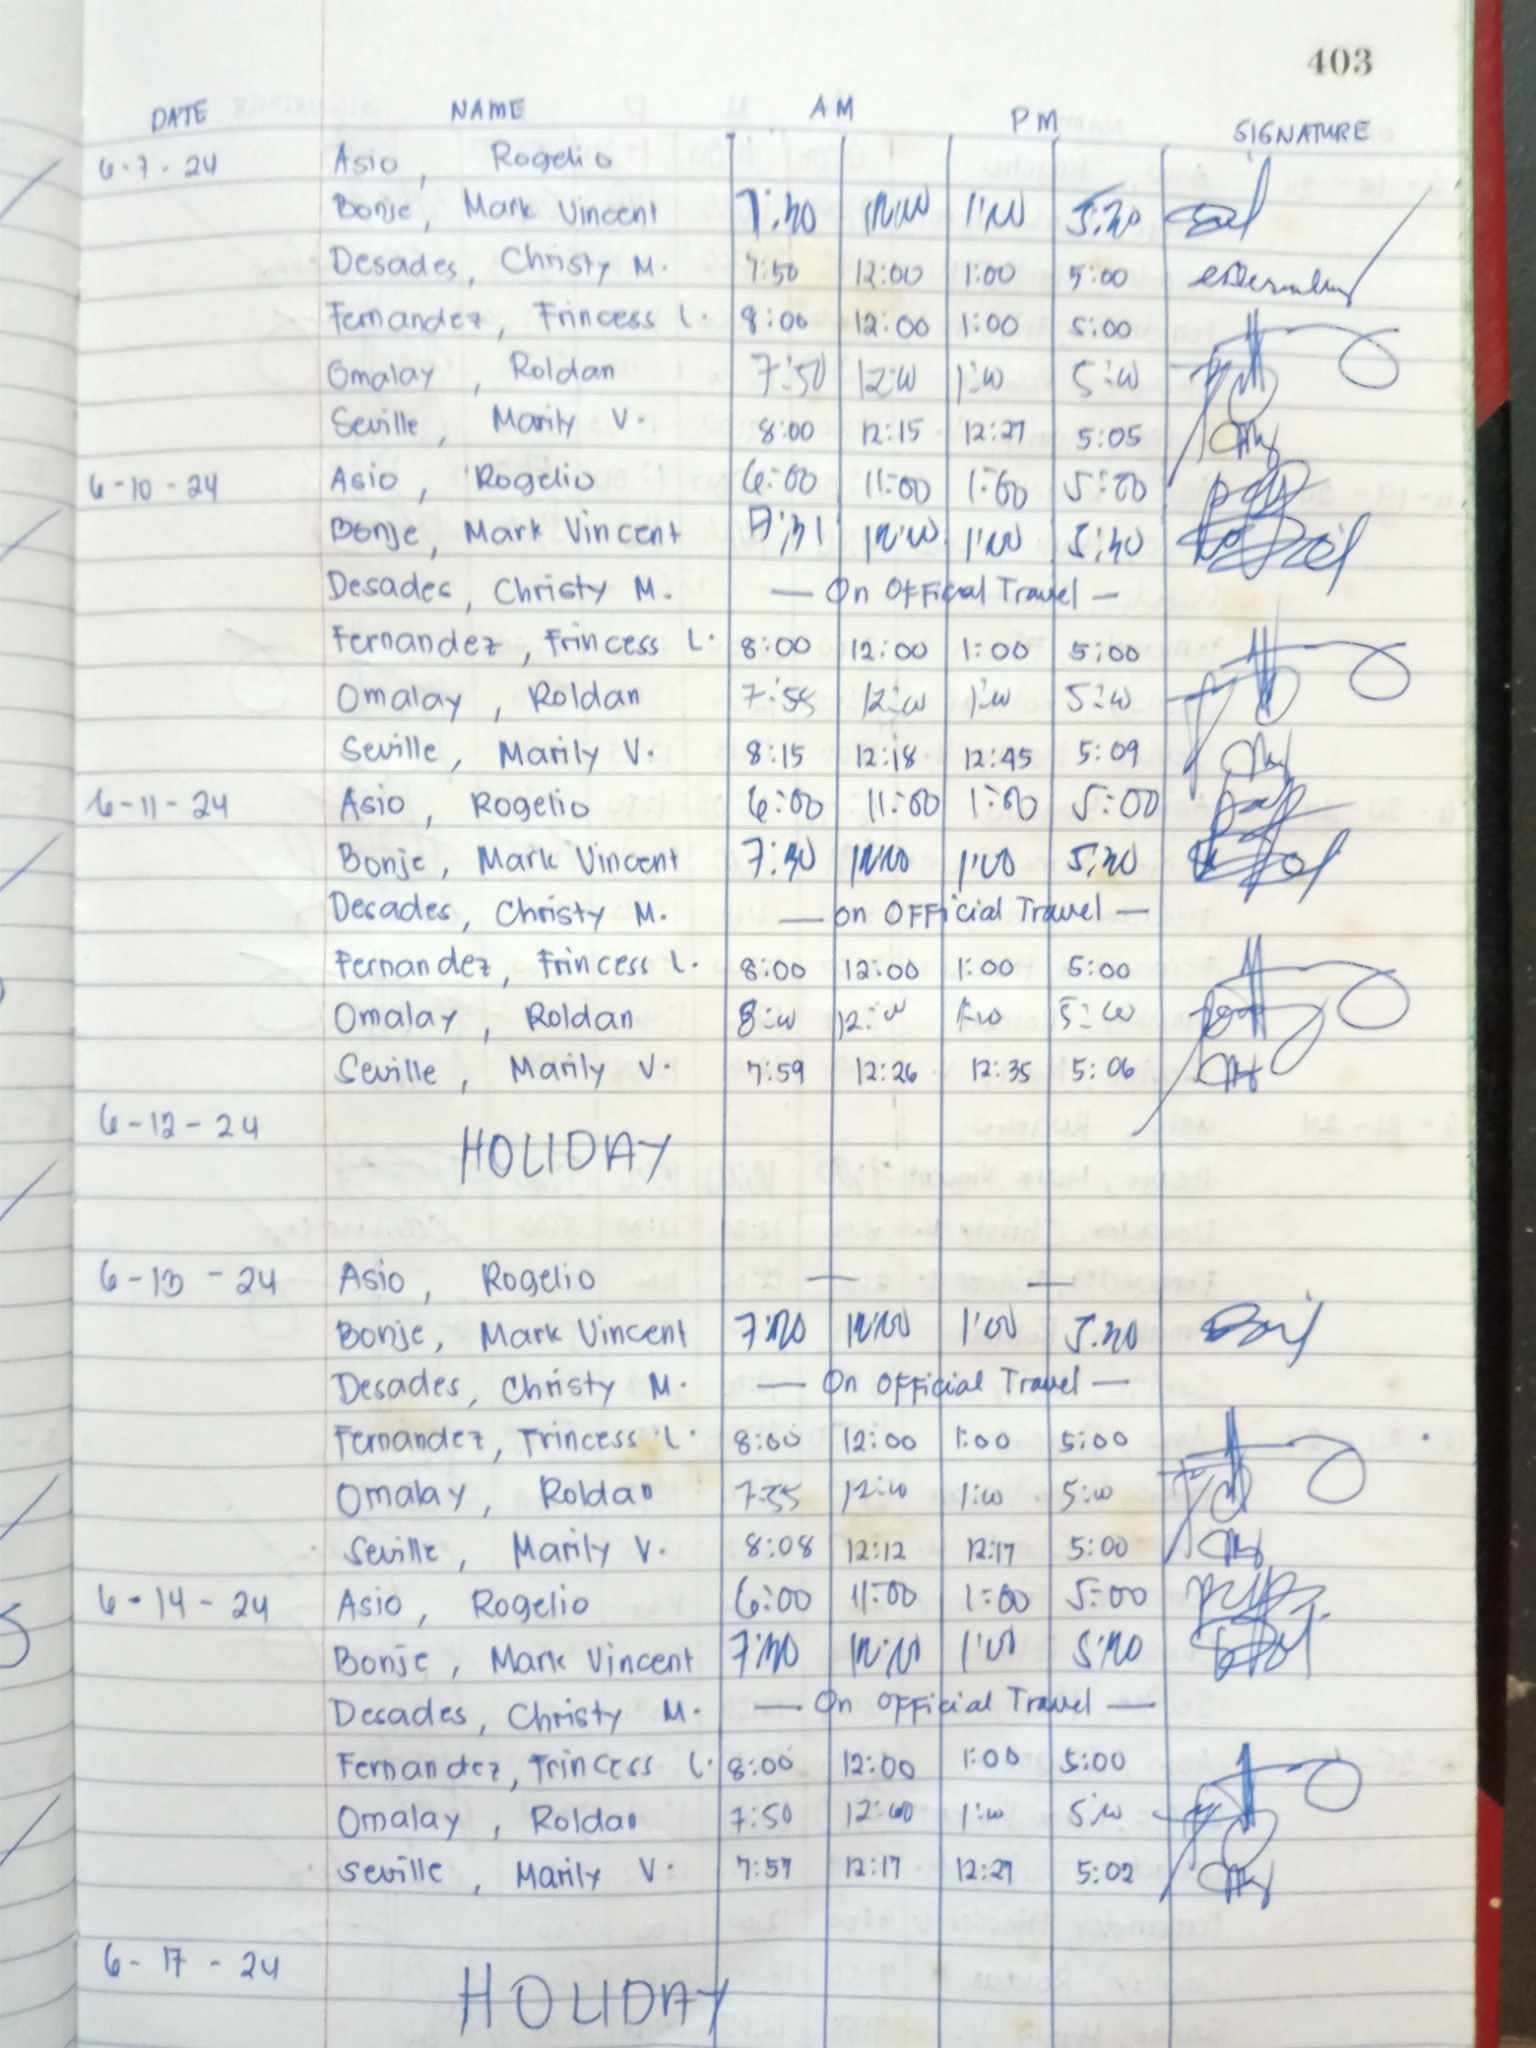 403
DATE NAME AM PM SIGNATURE
6-7-24 Asio, Rogelio
Bonje, Mark Vincent 7:30 12:00 1:00 5:30
Desades, Christy M. 7:50 12:00 1:00 5:00
Fernandez, Frincess L. 8:00 12:00 1:00 5:00
Omalay, Roldan 7:50 12:00 1:00 5:00
Seville, Marily V. 8:00 12:15 12:27 5:05
6-10-24 Asio, Rogelio 6:00 11:00 1:00 5:00
Bonje, Mark Vincent 7:31 12:00 1:00 5:30
Desades, Christy M. — On Official Travel —
Fernandez, Frincess L. 8:00 12:00 1:00 5:00
Omalay, Roldan 7:55 12:00 1:00 5:00
Seville, Marily V. 8:15 12:18 12:45 5:09
6-11-24 Asio, Rogelio 6:00 11:00 1:00 5:00
Bonje, Mark Vincent 7:30 12:00 1:00 5:30
Desades, Christy M. — on Official Travel —
Fernandez, Frincess L. 8:00 12:00 1:00 5:00
Omalay, Roldan 8:00 12:00 1:00 5:00
Seville, Marily V. 7:59 12:26 12:35 5:06
6-12-24
HOLIDAY
6-13-24 Asio, Rogelio — —
Bonje, Mark Vincent 12:00 1:00 5:30
Desades, Christy M. — On Official Travel —
Fernandez, Frincess L. 8:00 12:00 1:00 5:00
Omalay, Roldan 7:55 12:00 1:00 5:00
Seville, Marily V. 8:08 12:12 12:17 5:00
6-14-24 Asio, Rogelio 6:00 11:00 1:00 5:00
Bonje, Mark Vincent 7:30 12:00 1:00 5:30
Desades, Christy M. — On Official Travel —
Fernandez, Frincess L. 8:00 12:00 1:00 5:00
Omalay, Roldan 7:50 12:00 1:00 5:00
Seville, Marily V. 7:57 12:17 12:27 5:02
6-17-24
HOLIDAY